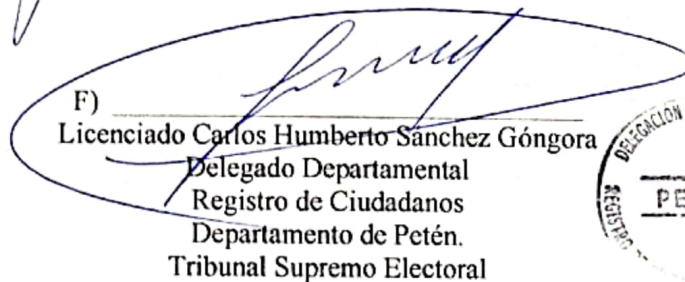 F)
Licenciado Carlos Humberto Sánchez Góngora
Delegado Departamental
Registro de Ciudadanos
Departamento de Petén.
Tribunal Supremo Electoral
DELEGACION
PE
REGISTRO